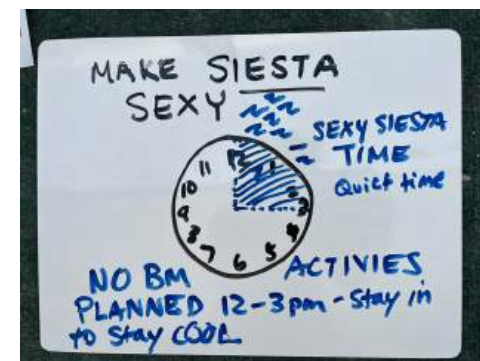 MAKE SIESTA
SEXY
- SEXY SIESTA
TIME
Quiet time
12
11
1
10
2
9
3
8
4
7
5
6
NO BM ACTIVIES
PLANNED 12-3pm - Stay in
to Stay COOL